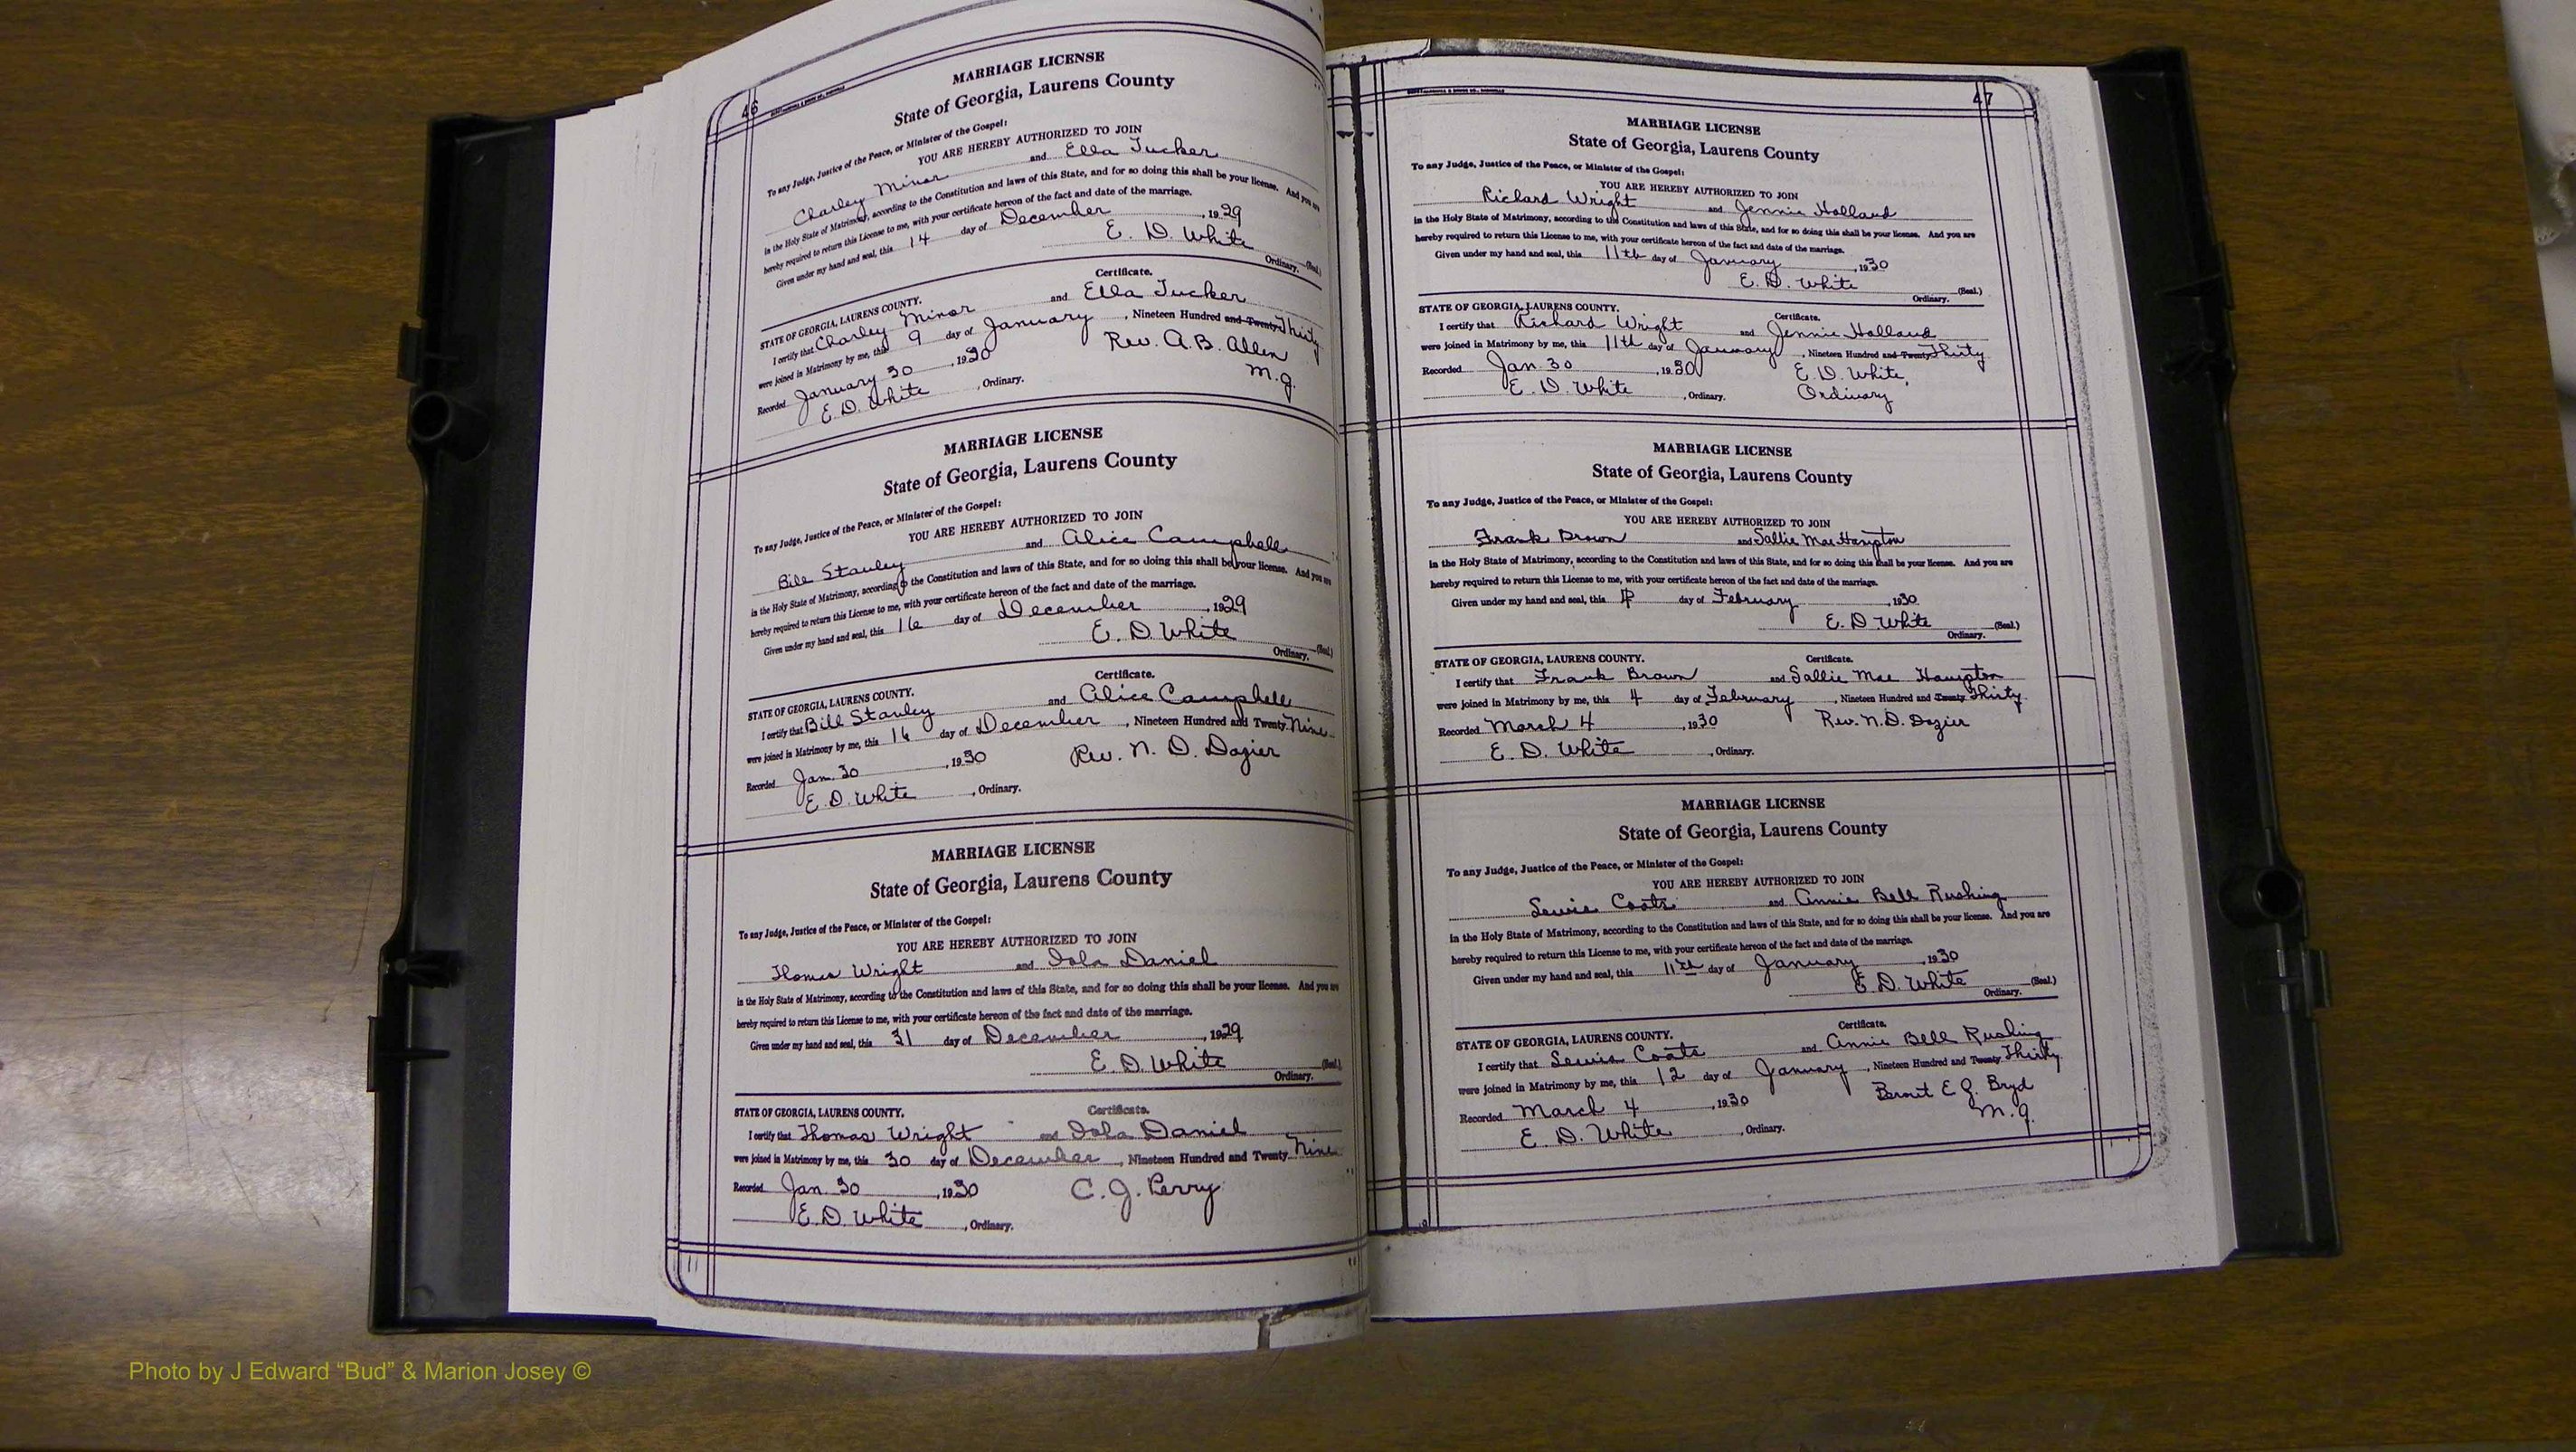 46
MARRIAGE LICENSE
State of Georgia, Laurens County
To any Judge, Justice of the Peace, or Minister of the Gospel:
YOU ARE HEREBY AUTHORIZED TO JOIN
Charley Minor and Ella Tucker
in the Holy State of Matrimony, according to the Constitution and laws of this State, and for so doing this shall be your license. And you are
hereby required to return this License to me, with your certificate hereon of the fact and date of the marriage.
Given under my hand and seal, this 14 day of December, 1929
E. D. White (Seal.)
Ordinary.
Certificate.
STATE OF GEORGIA, LAURENS COUNTY.
I certify that Charley Minor and Ella Tucker
were joined in Matrimony by me, this 9 day of January, Nineteen Hundred and Twenty Thirty
Recorded January 30, 1930 Rev. A.B. Allen
E. D. White, Ordinary. M.G.
MARRIAGE LICENSE
State of Georgia, Laurens County
To any Judge, Justice of the Peace, or Minister of the Gospel:
YOU ARE HEREBY AUTHORIZED TO JOIN
Bill Stanley and Alice Campbell
in the Holy State of Matrimony, according to the Constitution and laws of this State, and for so doing this shall be your license. And you are
hereby required to return this License to me, with your certificate hereon of the fact and date of the marriage.
Given under my hand and seal, this 16 day of December, 1929
E. D. White (Seal.)
Ordinary.
Certificate.
STATE OF GEORGIA, LAURENS COUNTY.
I certify that Bill Stanley and Alice Campbell
were joined in Matrimony by me, this 16 day of December, Nineteen Hundred and Twenty Nine
Recorded Jan. 30, 1930 Rev. N. D. Dozier
E. D. White, Ordinary.
MARRIAGE LICENSE
State of Georgia, Laurens County
To any Judge, Justice of the Peace, or Minister of the Gospel:
YOU ARE HEREBY AUTHORIZED TO JOIN
Thomas Wright and Iola Daniel
in the Holy State of Matrimony, according to the Constitution and laws of this State, and for so doing this shall be your license. And you are
hereby required to return this License to me, with your certificate hereon of the fact and date of the marriage.
Given under my hand and seal, this 31 day of December, 1929
E. D. White (Seal.)
Ordinary.
STATE OF GEORGIA, LAURENS COUNTY. Certificate.
I certify that Thomas Wright and Iola Daniel
were joined in Matrimony by me, this 30 day of December, Nineteen Hundred and Twenty Nine
Recorded Jan. 30, 1930 C. J. Perry
E. D. White, Ordinary.
47
MARRIAGE LICENSE
State of Georgia, Laurens County
To any Judge, Justice of the Peace, or Minister of the Gospel:
YOU ARE HEREBY AUTHORIZED TO JOIN
Richard Wright and Jennie Holland
in the Holy State of Matrimony, according to the Constitution and laws of this State, and for so doing this shall be your license. And you are
hereby required to return this License to me, with your certificate hereon of the fact and date of the marriage.
Given under my hand and seal, this 11th day of January, 1930
E. D. White (Seal.)
Ordinary.
STATE OF GEORGIA, LAURENS COUNTY. Certificate.
I certify that Richard Wright and Jennie Holland
were joined in Matrimony by me, this 11th day of January, Nineteen Hundred and Twenty Thirty
Recorded Jan. 30, 1930 E. D. White,
E. D. White, Ordinary. Ordinary
MARRIAGE LICENSE
State of Georgia, Laurens County
To any Judge, Justice of the Peace, or Minister of the Gospel:
YOU ARE HEREBY AUTHORIZED TO JOIN
Frank Brown and Sallie Mae Hampton
in the Holy State of Matrimony, according to the Constitution and laws of this State, and for so doing this shall be your license. And you are
hereby required to return this License to me, with your certificate hereon of the fact and date of the marriage.
Given under my hand and seal, this 4 day of February, 1930
E. D. White (Seal.)
Ordinary.
STATE OF GEORGIA, LAURENS COUNTY. Certificate.
I certify that Frank Brown and Sallie Mae Hampton
were joined in Matrimony by me, this 4 day of February, Nineteen Hundred and Twenty Thirty
Recorded March 4, 1930 Rev. N. D. Dozier
E. D. White, Ordinary.
MARRIAGE LICENSE
State of Georgia, Laurens County
To any Judge, Justice of the Peace, or Minister of the Gospel:
YOU ARE HEREBY AUTHORIZED TO JOIN
Lewis Coats and Annie Bell Rushing
in the Holy State of Matrimony, according to the Constitution and laws of this State, and for so doing this shall be your license. And you are
hereby required to return this License to me, with your certificate hereon of the fact and date of the marriage.
Given under my hand and seal, this 11th day of January, 1930
E. D. White (Seal.)
Ordinary.
STATE OF GEORGIA, LAURENS COUNTY. Certificate.
I certify that Lewis Coats and Annie Bell Rushing
were joined in Matrimony by me, this 12 day of January, Nineteen Hundred and Twenty Thirty
Recorded March 4, 1930 E J. Bryd
E. D. White, Ordinary. M.G.
Photo by J Edward “Bud” & Marion Josey ©